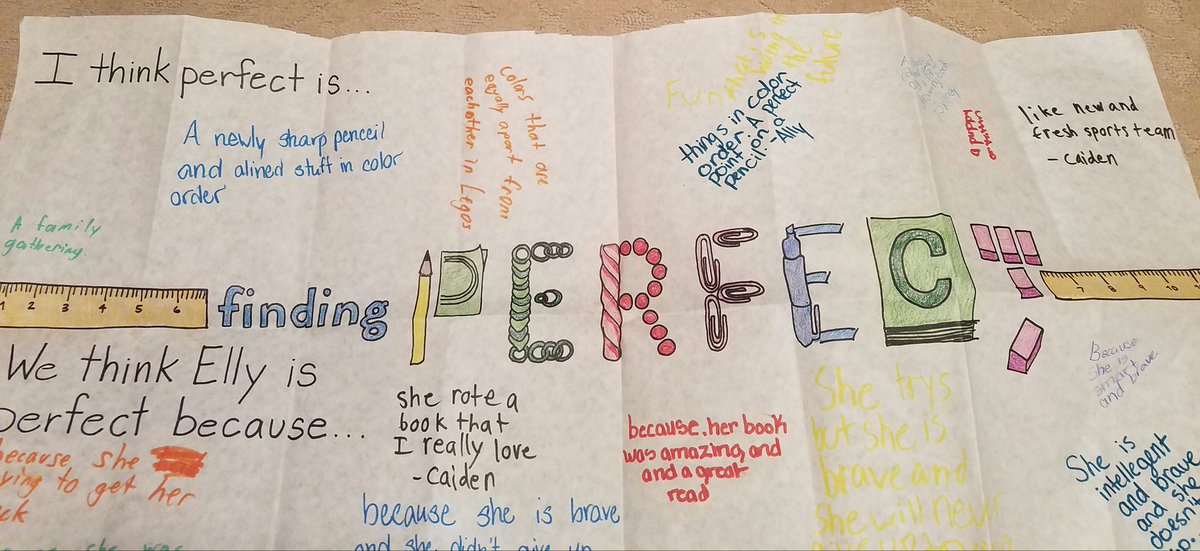 I think perfect is...
A newly sharp penceil
and alined stuff in color
order
colors that are
eqally apart from
eachother in Legos
Fun
the
future
things in color
order A perfect
point on a
pencil. - Ally
like new and
fresh sports team
- Caiden
A family
gathering.
1 2 3 4 5 6
finding PERFECT
7 8 9 10
We think Elly is
perfect because...
she rote a
book that
I really love
- Caiden
because, her book
was amazing, and
and a great
read
She trys
but she is
brave and
She will never
Because
she is
smart
and brave.
because she
to get her
because she is brave
and she didn't give up
She is
intellegent
and brave
and she
doesn't
she was